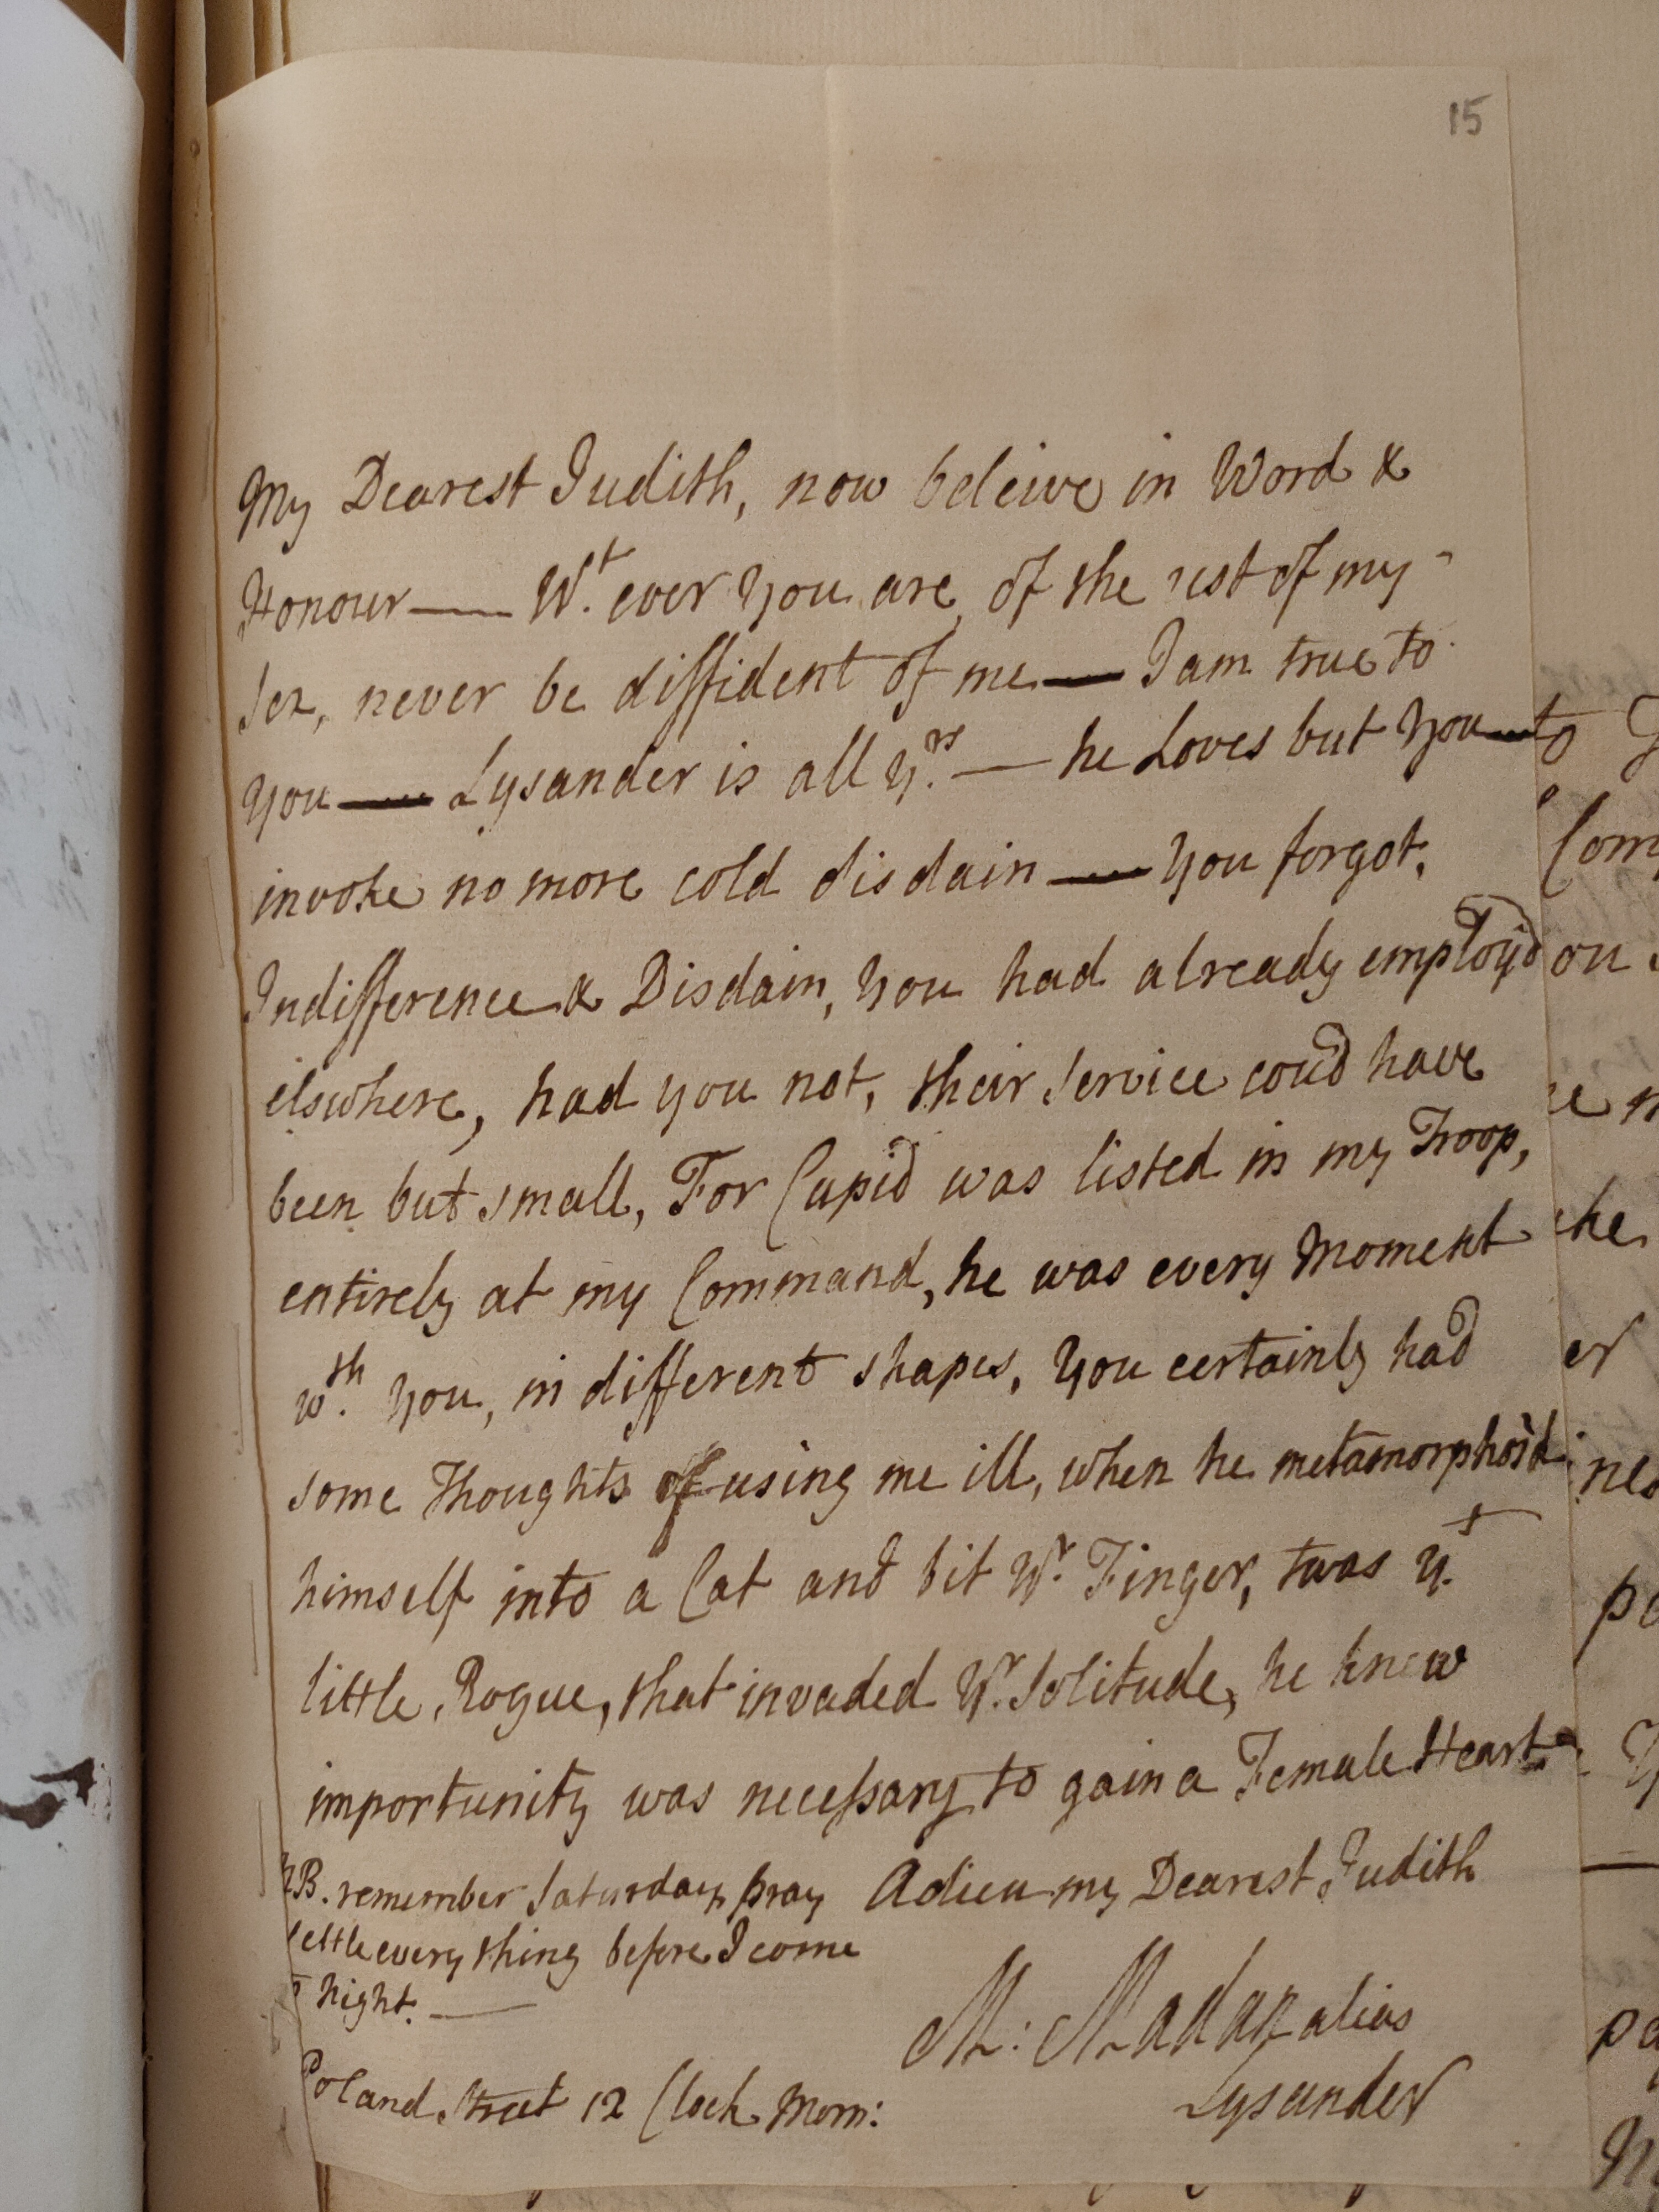 15
My Dearest Judith, now beleive in Word &
Honour — Wt. ever you are of the rest of my
Sex, never be diffident of me — I am true to
you — Lysander is all yrs. — he Loves but you — to
invoke no more cold disdain — you forgot,
Indifference & Disdain, you had already employ'd
elswhere, had you not, their Service cou'd have
been but small, For Cupid was listed in my Troop,
entirely at my Command, he was every Moment
wth. you, in different shapes, you certainly had
some Thoughts of using me ill, when he metamorphos'd
himself into a Cat and bit Yr. Finger, twas yt.
little Rogue, that invaded Yr. Solitude, he knew
importunity was necessary to gain a Female Heart
Adieu my Dearest Judith
NB. remember Saturday, pray
settle every thing before I come
night. —
M: Madan alias
Lysander
Poland Street 12 Clock Morn: